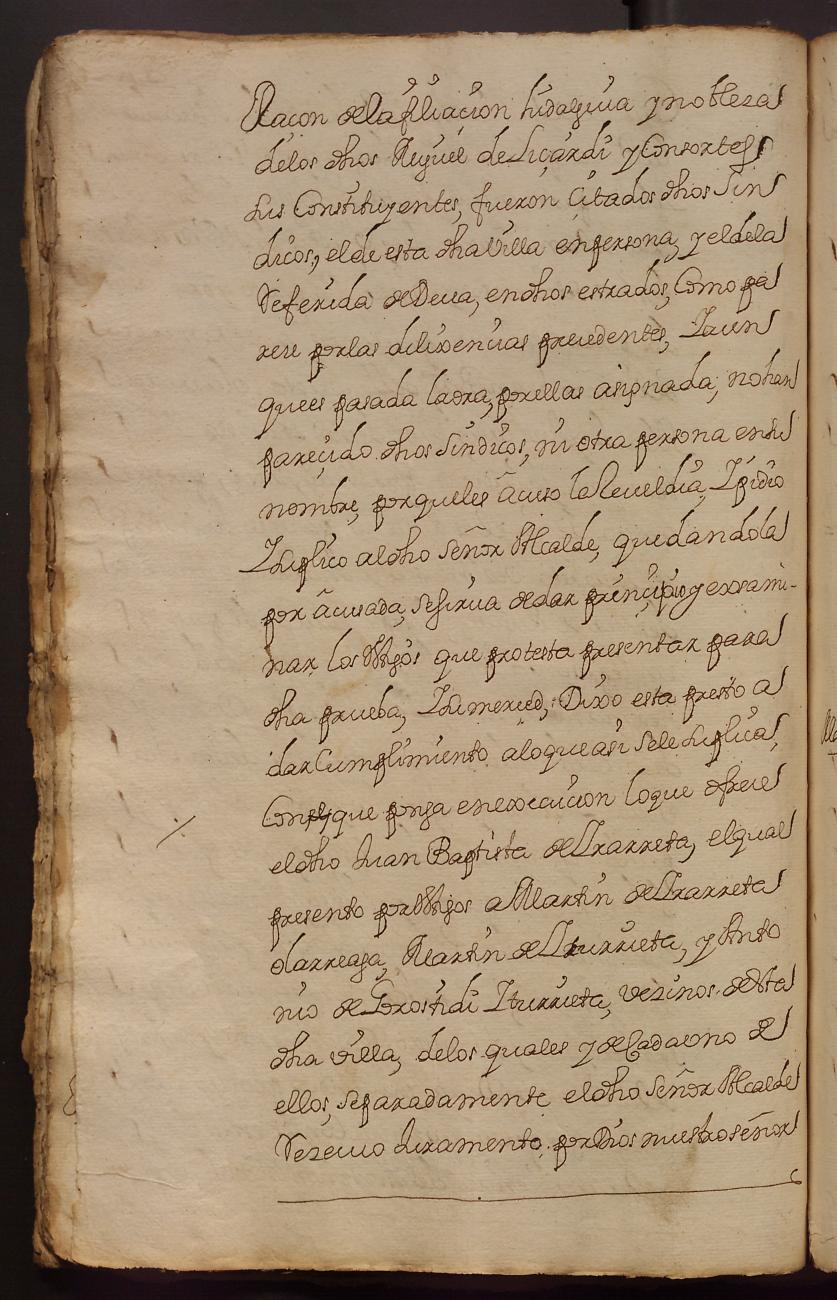 Racon dela filiacion hidalguia y nobleza
delos dhos Miguel de Liçardi y Consortes
sus Constituyentes, fueron Citados dhos Sin
dicos, elde esta dha Villa enpersona, y eldela
Referida de Deua, endhos estrados, Como pa
rece porlas dilixencias precedentes, Iaun
quees pasada laora, porellas asignada, nohan
pareçido dhos Sindicos, ni otra persona ensu
nombre, porqueles acuso la Reueldia, Ipidio
Isuplico aldho Señor Alcalde, quedandola
por acusada, sesirua dedar prinçipio y exsami-
nar los ttigos que protesta presentar para
dha prueba, Isumerced, Dixo esta presto a
dar Cumplimiento, aloqueasi sele suplica,
Con que ponga enexecucion loque ofrece
eldho Juan Baptista de Irarreta, elqual
presento por ttigos a Martin de Irarreta
olarreaga, Martin de Iturrieta, y Anto
nio de Gorostidi Iturrieta, vezinos desta
dha villa, delos quales y de Cadauno de
ellos, separadamente eldho Señor Alcalde
Rezeuio Juramento, por Dios nuestro señor